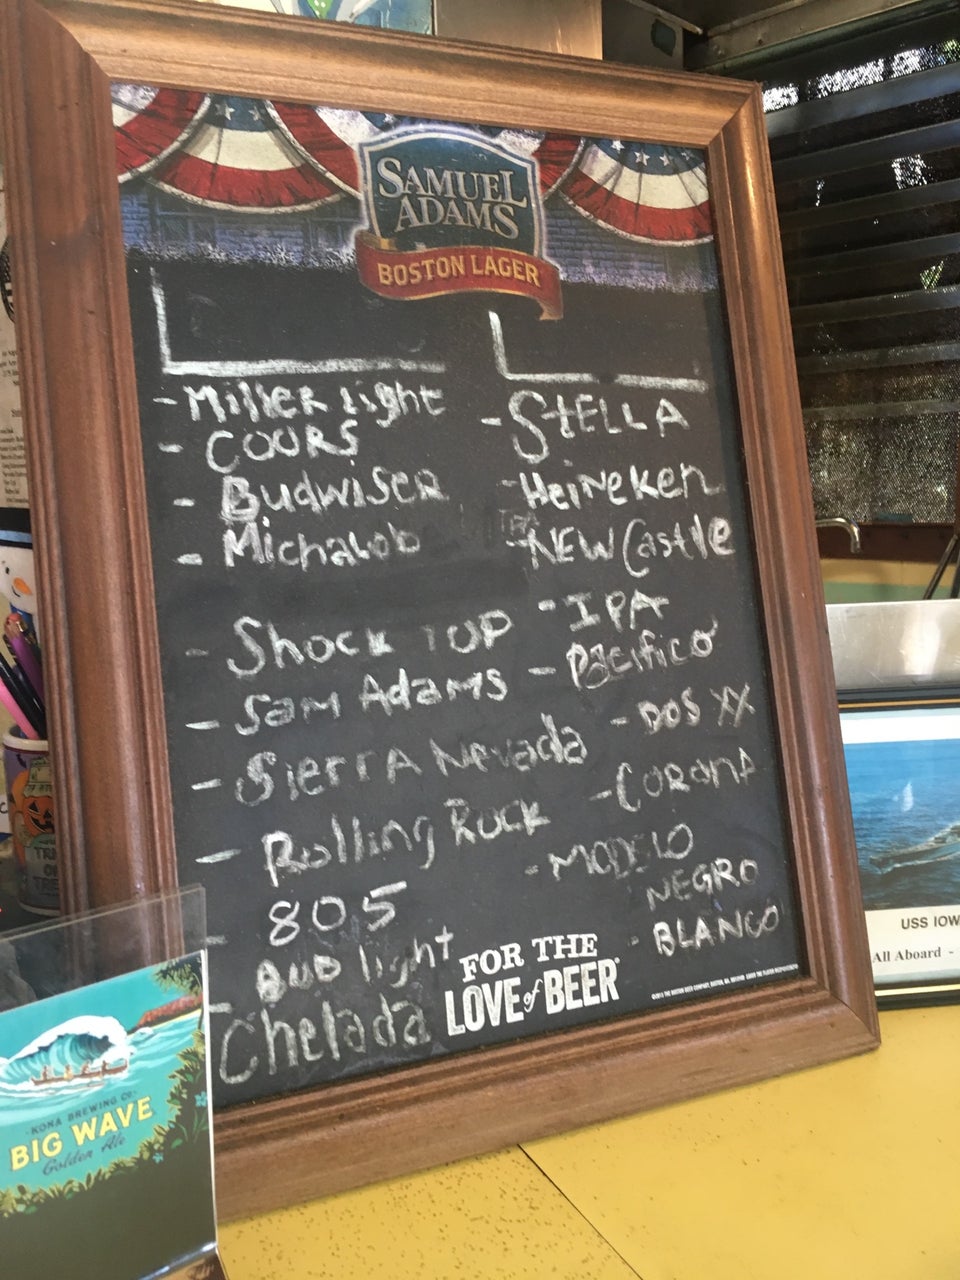 SAMUEL
ADAMS
BOSTON LAGER
- Miller Light
- COORS
- Budwiser
- Michalob
- Shock TOP
- Sam Adams
- Sierra Nevada
- Rolling Rock
- 805
- Bud light
Chelada
- STELLA
- Heineken
- NEW Castle
- IPA
- Pacifico
- DOS XX
- CORONA
- MODELO
NEGRO
- BLANCO
FOR THE
LOVE of BEER
KONA BREWING CO.
BIG WAVE
Golden Ale
USS IOW
All Aboard -